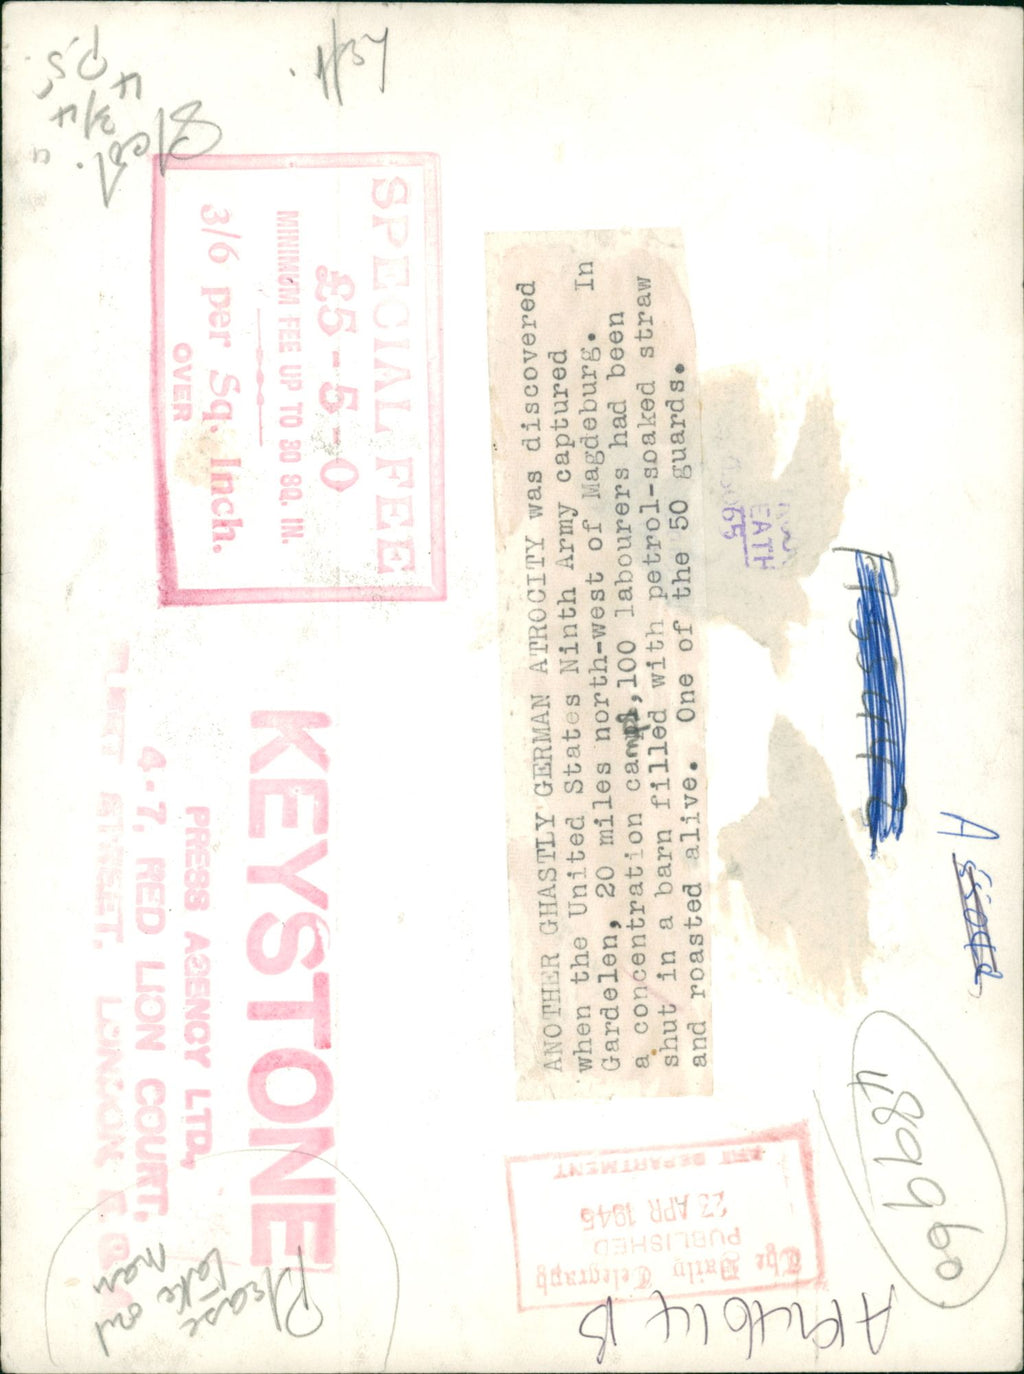 ANOTHER GHASTLY GERMAN ATROCITY was discovered
when the United States Ninth Army captured
Gardelen, 20 miles north-west of Magdeburg. In
a concentration camp, 100 labourers had been
shut in a barn filled with petrol-soaked straw
and roasted alive. One of the 50 guards.
SPECIAL FEE
£5-5-0
MINIMUM FEE UP TO 30 SQ. IN.
3/6 per Sq. Inch.
OVER
KEYSTONE
PRESS AGENCY LTD.,
4-7, RED LION COURT,
FLEET STREET, LONDON E
The Daily Telegraph
PUBLISHED
23 APR 1945
ART DEPARTMENT
Please
take out
man
EATH
65